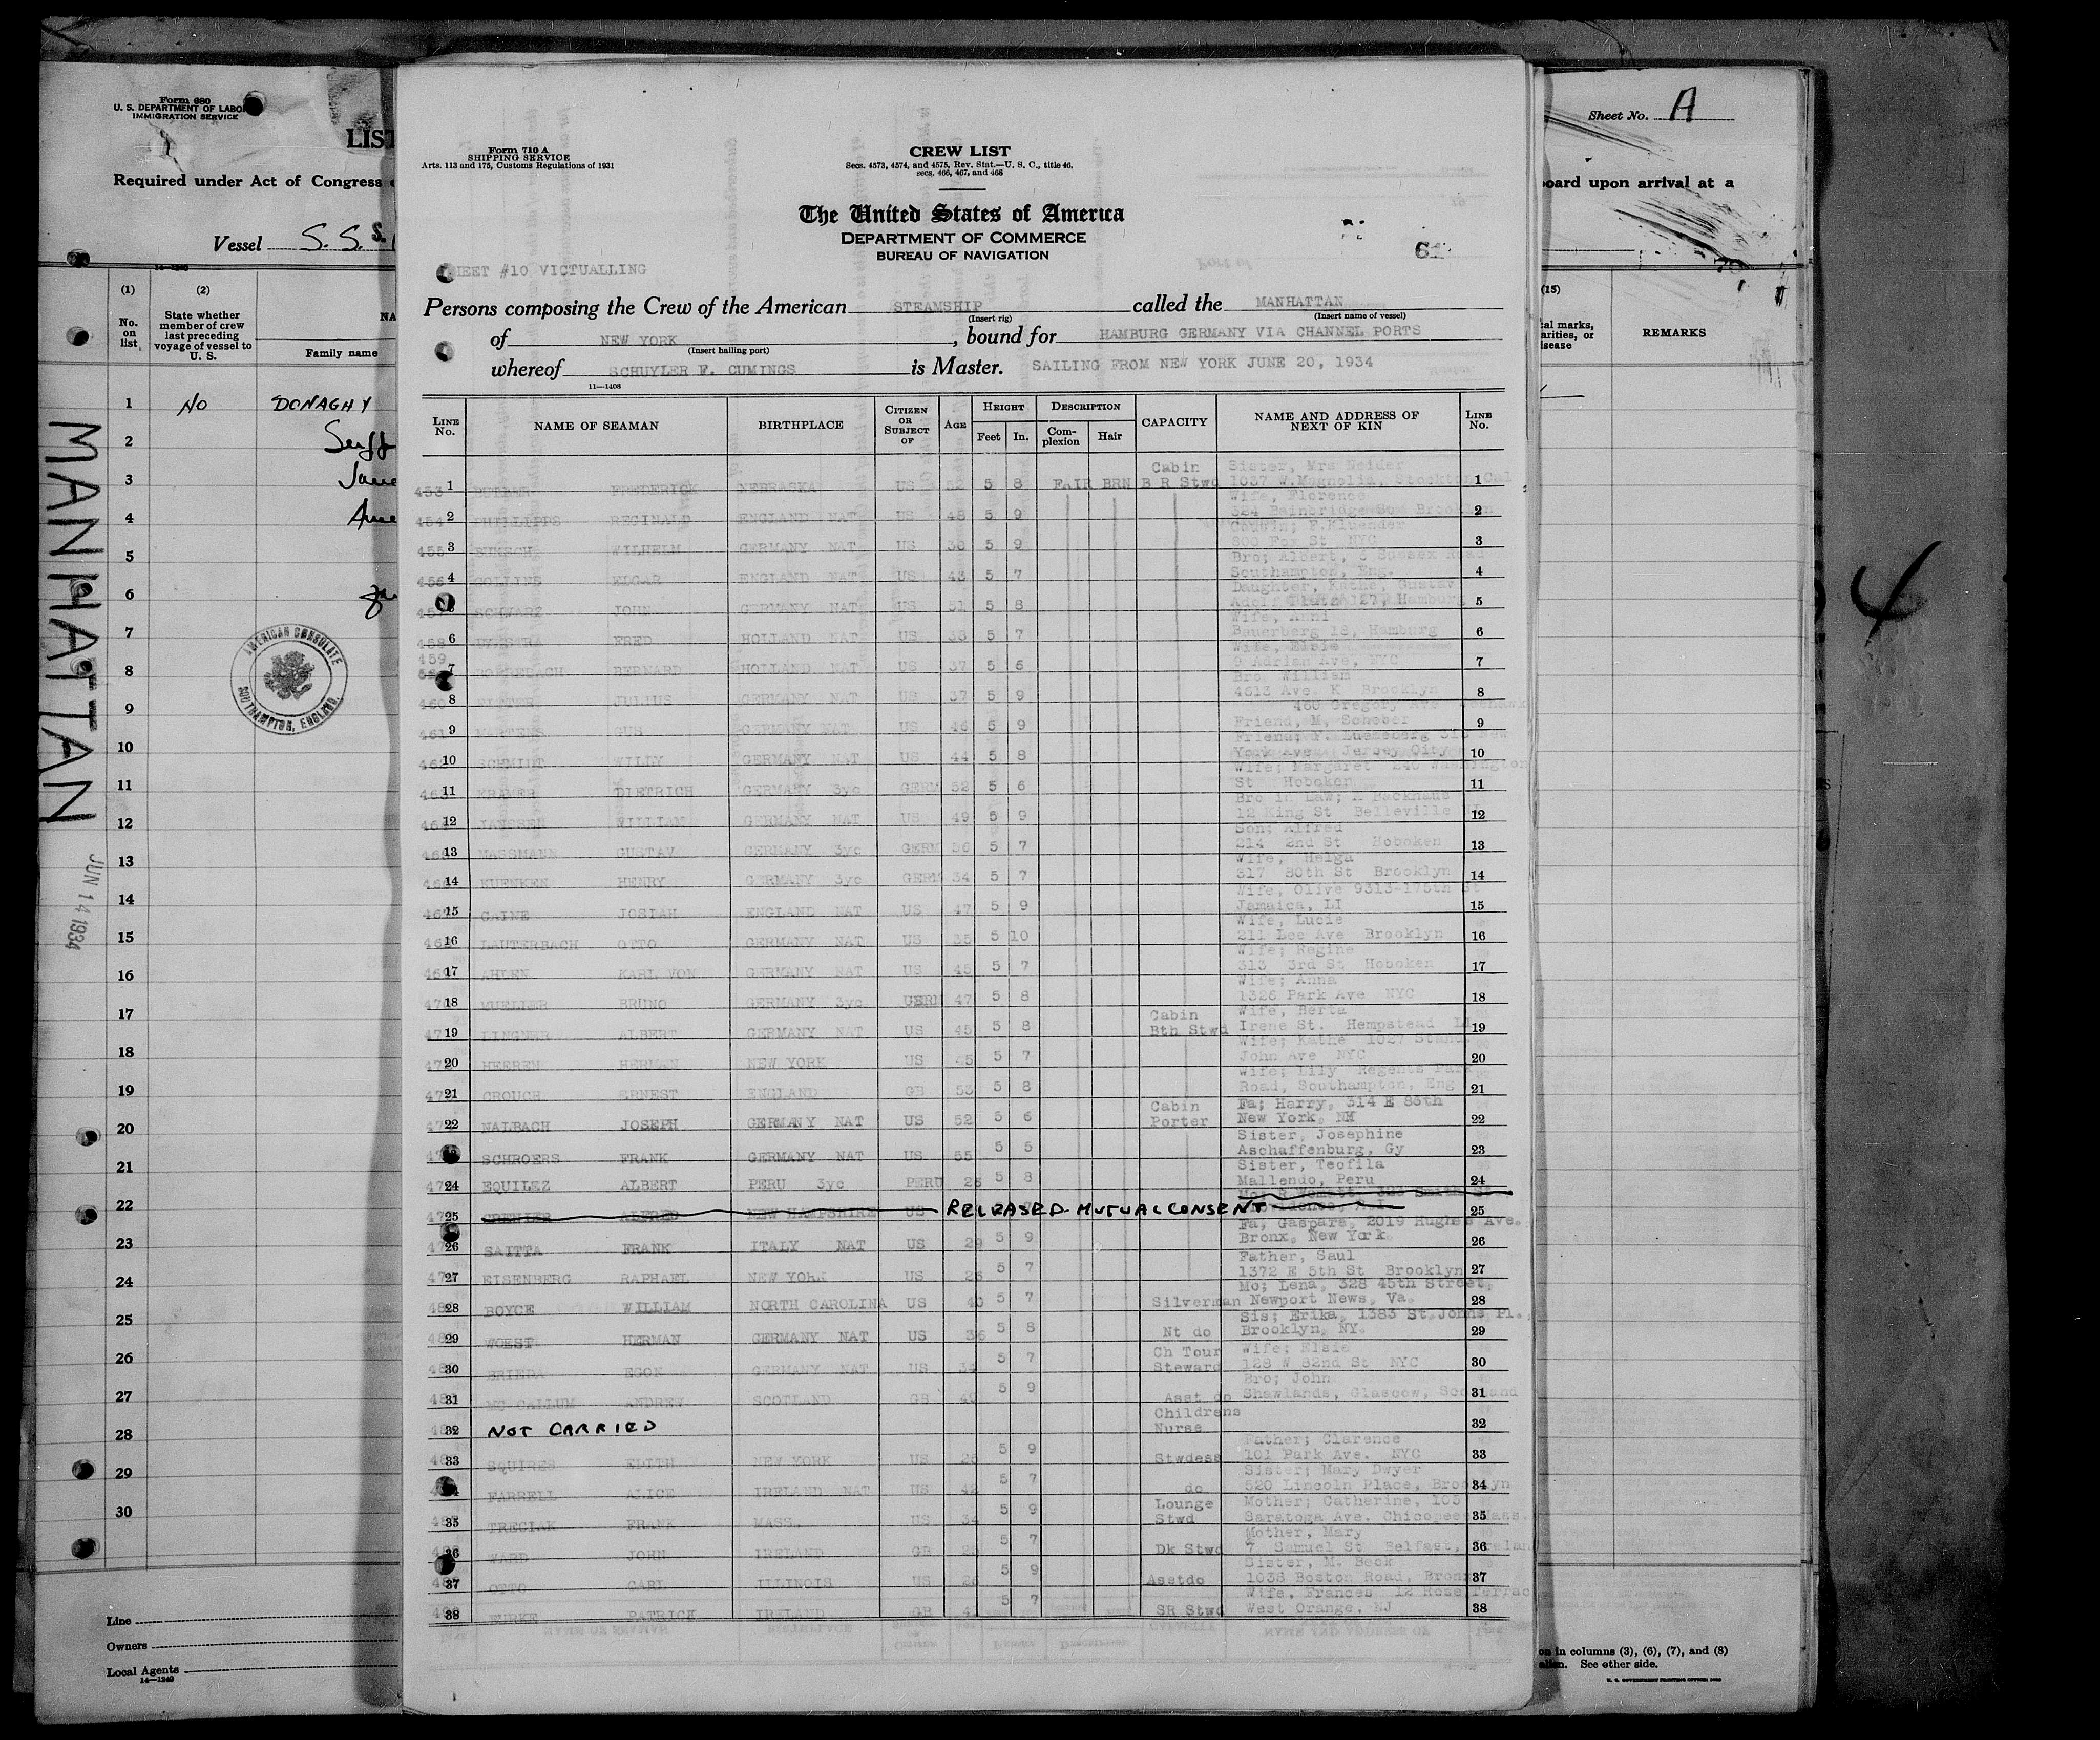 Form 680
U. S. DEPARTMENT OF LABOR
IMMIGRATION SERVICE
LIST
Required under Act of Congress
Vessel S. S.
14-1240
(1) (2)
No. on list
State whether member of crew last preceding voyage of vessel to U. S.
NA
Family name
1 NO DONAGHY
2
3
4
5
6
7
8
9
10
11
12
13
14
15
16
17
18
19
20
21
22
23
24
25
26
27
28
29
30
AMERICAN CONSULATE
SOUTHAMPTON, ENGLAND.
MANHATTAN
JUN 14 1934
Line
Owners
Local Agents
14-1240
Form 710 A
SHIPPING SERVICE
Arts. 113 and 175, Customs Regulations of 1931
CREW LIST
Secs. 4573, 4574, and 4575, Rev. Stat.—U. S. C., title 46,
secs. 466, 467, and 468
The United States of America
DEPARTMENT OF COMMERCE
BUREAU OF NAVIGATION
SHEET #10 VICTUALLING
Persons composing the Crew of the American STEAMSHIP called the MANHATTAN
(Insert rig) (Insert name of vessel)
of NEW YORK, bound for HAMBURG GERMANY VIA CHANNEL PORTS
(Insert hailing port)
whereof SCHUYLER F. CUMINGS is Master. SAILING FROM NEW YORK JUNE 20, 1934
11-1408
LINE No. NAME OF SEAMAN BIRTHPLACE CITIZEN OR SUBJECT OF AGE HEIGHT Feet In. DESCRIPTION Complexion Hair CAPACITY NAME AND ADDRESS OF NEXT OF KIN LINE No.
453 1 FREDERICK NEBRASKA US 52 5 8 FAIR BRN Cabin B R Stwd Sister, Mrs Neider 1037 W.Magnolia, Stockton Cal 1
454 2 PHILLIPPS REGINALD ENGLAND NAT US 48 5 9 Wife, Florence 324 Bainbridge St Brooklyn 2
455 3 WILHELM GERMANY NAT US 5 9 Cousin; F.Kluender 800 Fox St NYC 3
456 4 COLLINS EDGAR ENGLAND NAT US 43 5 7 Bro; Albert, 6 Sussex Road Southampton, Eng. 4
457 5 SCHWARZ JOHN GERMANY NAT US 51 5 8 Daughter, Kathe, Gustav Adolf 27, Hamburg 5
458 6 FRED HOLLAND NAT US 5 7 Wife, Anni Bauerberg 18, Hamburg 6
459 7 BERNARD HOLLAND NAT US 37 5 6 Wife, Elsie 9 Adrian Ave, NYC 7
460 8 JULIUS GERMANY NAT US 37 5 9 Bro William 4613 Ave. K Brooklyn 8
461 9 MARTENS GUS GERMANY NAT US 46 5 9 460 Gregory Ave Weehawk Friend, M, Schober 9
462 10 SCHMIDT WILLY GERMANY NAT US 44 5 8 Friend; New York Ave Jersey City 10
463 11 KRAMER DIETRICH GERMANY 3yc GERM 52 5 6 Wife; Margaret 245 Washington St Hoboken 11
464 12 JANSSEN WILLIAM GERMANY NAT US 49 5 9 Bro in Law; A Backhaus 12 King St Belleville NJ 12
465 13 MASSMANN GUSTAV GERMANY 3yc GERM 56 5 7 Son; Alfred 214 2nd St Hoboken 13
466 14 KUENKEN HENRY GERMANY 3yc GERM 34 5 7 Wife, Helga 317 80th St Brooklyn 14
467 15 CAINE JOSIAH ENGLAND NAT US 47 5 9 Wife, Olive 9313-175th St Jamaica, LI 15
468 16 LAUTERBACH OTTO GERMANY NAT US 35 5 10 Wife, Lucie 211 Lee Ave Brooklyn 16
469 17 AHLEN KARL VON GERMANY NAT US 45 5 7 Wife; Regine 313 3rd St Hoboken 17
470 18 MUELLER BRUNO GERMANY 3yc GERM 47 5 8 Wife; Anna 1326 Park Ave NYC 18
471 19 LINGNER ALBERT GERMANY NAT US 45 5 8 Cabin Bth Stwd Wife, Berta Irene St. Hempstead LI 19
472 20 HEEREN HERMAN NEW YORK US 45 5 7 Wife; Kathe 1027 Stand. John Ave NYC 20
473 21 CROUCH ERNEST ENGLAND GB 53 5 8 Wife; Lily Regents Park Road, Southampton, Eng 21
474 22 NALBACH JOSEPH GERMANY NAT US 52 5 6 Cabin Porter Fa; Harry, 314 E 85th New York, NH 22
SCHROERS FRANK GERMANY NAT US 55 5 5 Sister, Josephine Aschaffenburg, Gy 23
24 EQUILEZ ALBERT PERU 3yc PERU 26 5 8 Sister, Teofila Mallendo, Peru 24
25 GRENIER ALFRED NEW HAMPSHIRE US RELEASED MUTUAL CONSENT 25
26 SAITTA FRANK ITALY NAT US 29 5 9 Fa, Gaspare, 2019 Hughes Ave. Bronx, New York 26
27 EISENBERG RAPHAEL NEW YORK US 5 7 Father, Saul 1372 E 5th St Brooklyn 27
28 BOYCE WILLIAM NORTH CAROLINA US 40 5 7 Silverman Mo; Lena, 328 45th Street, Newport News, Va. 28
29 WOEST HERMAN GERMANY NAT US 36 5 8 Nt do Sis; Erika, 1383 St.Johns Pl., Brooklyn, NY. 29
30 BRIEDA EGON GERMANY NAT US 34 5 7 Ch Tour Steward Wife; Elsie 128 W 82nd St NYC 30
31 MC CALLUM ANDREW SCOTLAND GB 5 9 Asst do Bro; John Shawlands, Glascow, Scotland 31
32 NOT CARRIED Childrens Nurse 32
33 SQUIRES EDITH NEW YORK US 5 9 Stwdess Father; Clarence 101 Park Ave. NYC 33
FARRELL ALICE IRELAND NAT US 42 5 7 do Sister; Mary Dwyer 520 Lincoln Place, Brooklyn 34
35 TRECIAK FRANK MASS US 34 5 9 Lounge Stwd Mother; Catherine, 105 Saratoga Ave. Chicopee Mass. 35
36 WARD JOHN IRELAND GB 5 7 Dk Stwd Mother, Mary 7 Samuel St Belfast, Ireland 36
37 OTTO CARL ILLINOIS US 26 5 9 Asstdo Sister, M. Beck 1038 Boston Road, Bronx 37
38 BURKE PATRICK IRELAND GB 5 7 SR Stwd Wife, Frances 12 Rose Terrace West Orange, NJ 38
Sheet No. A
board upon arrival at a
(15)
cal marks,
arities, or
isease
REMARKS
4
on in columns (3), (6), (7), and (8)
alien. See other side.
U. S. GOVERNMENT PRINTING OFFICE